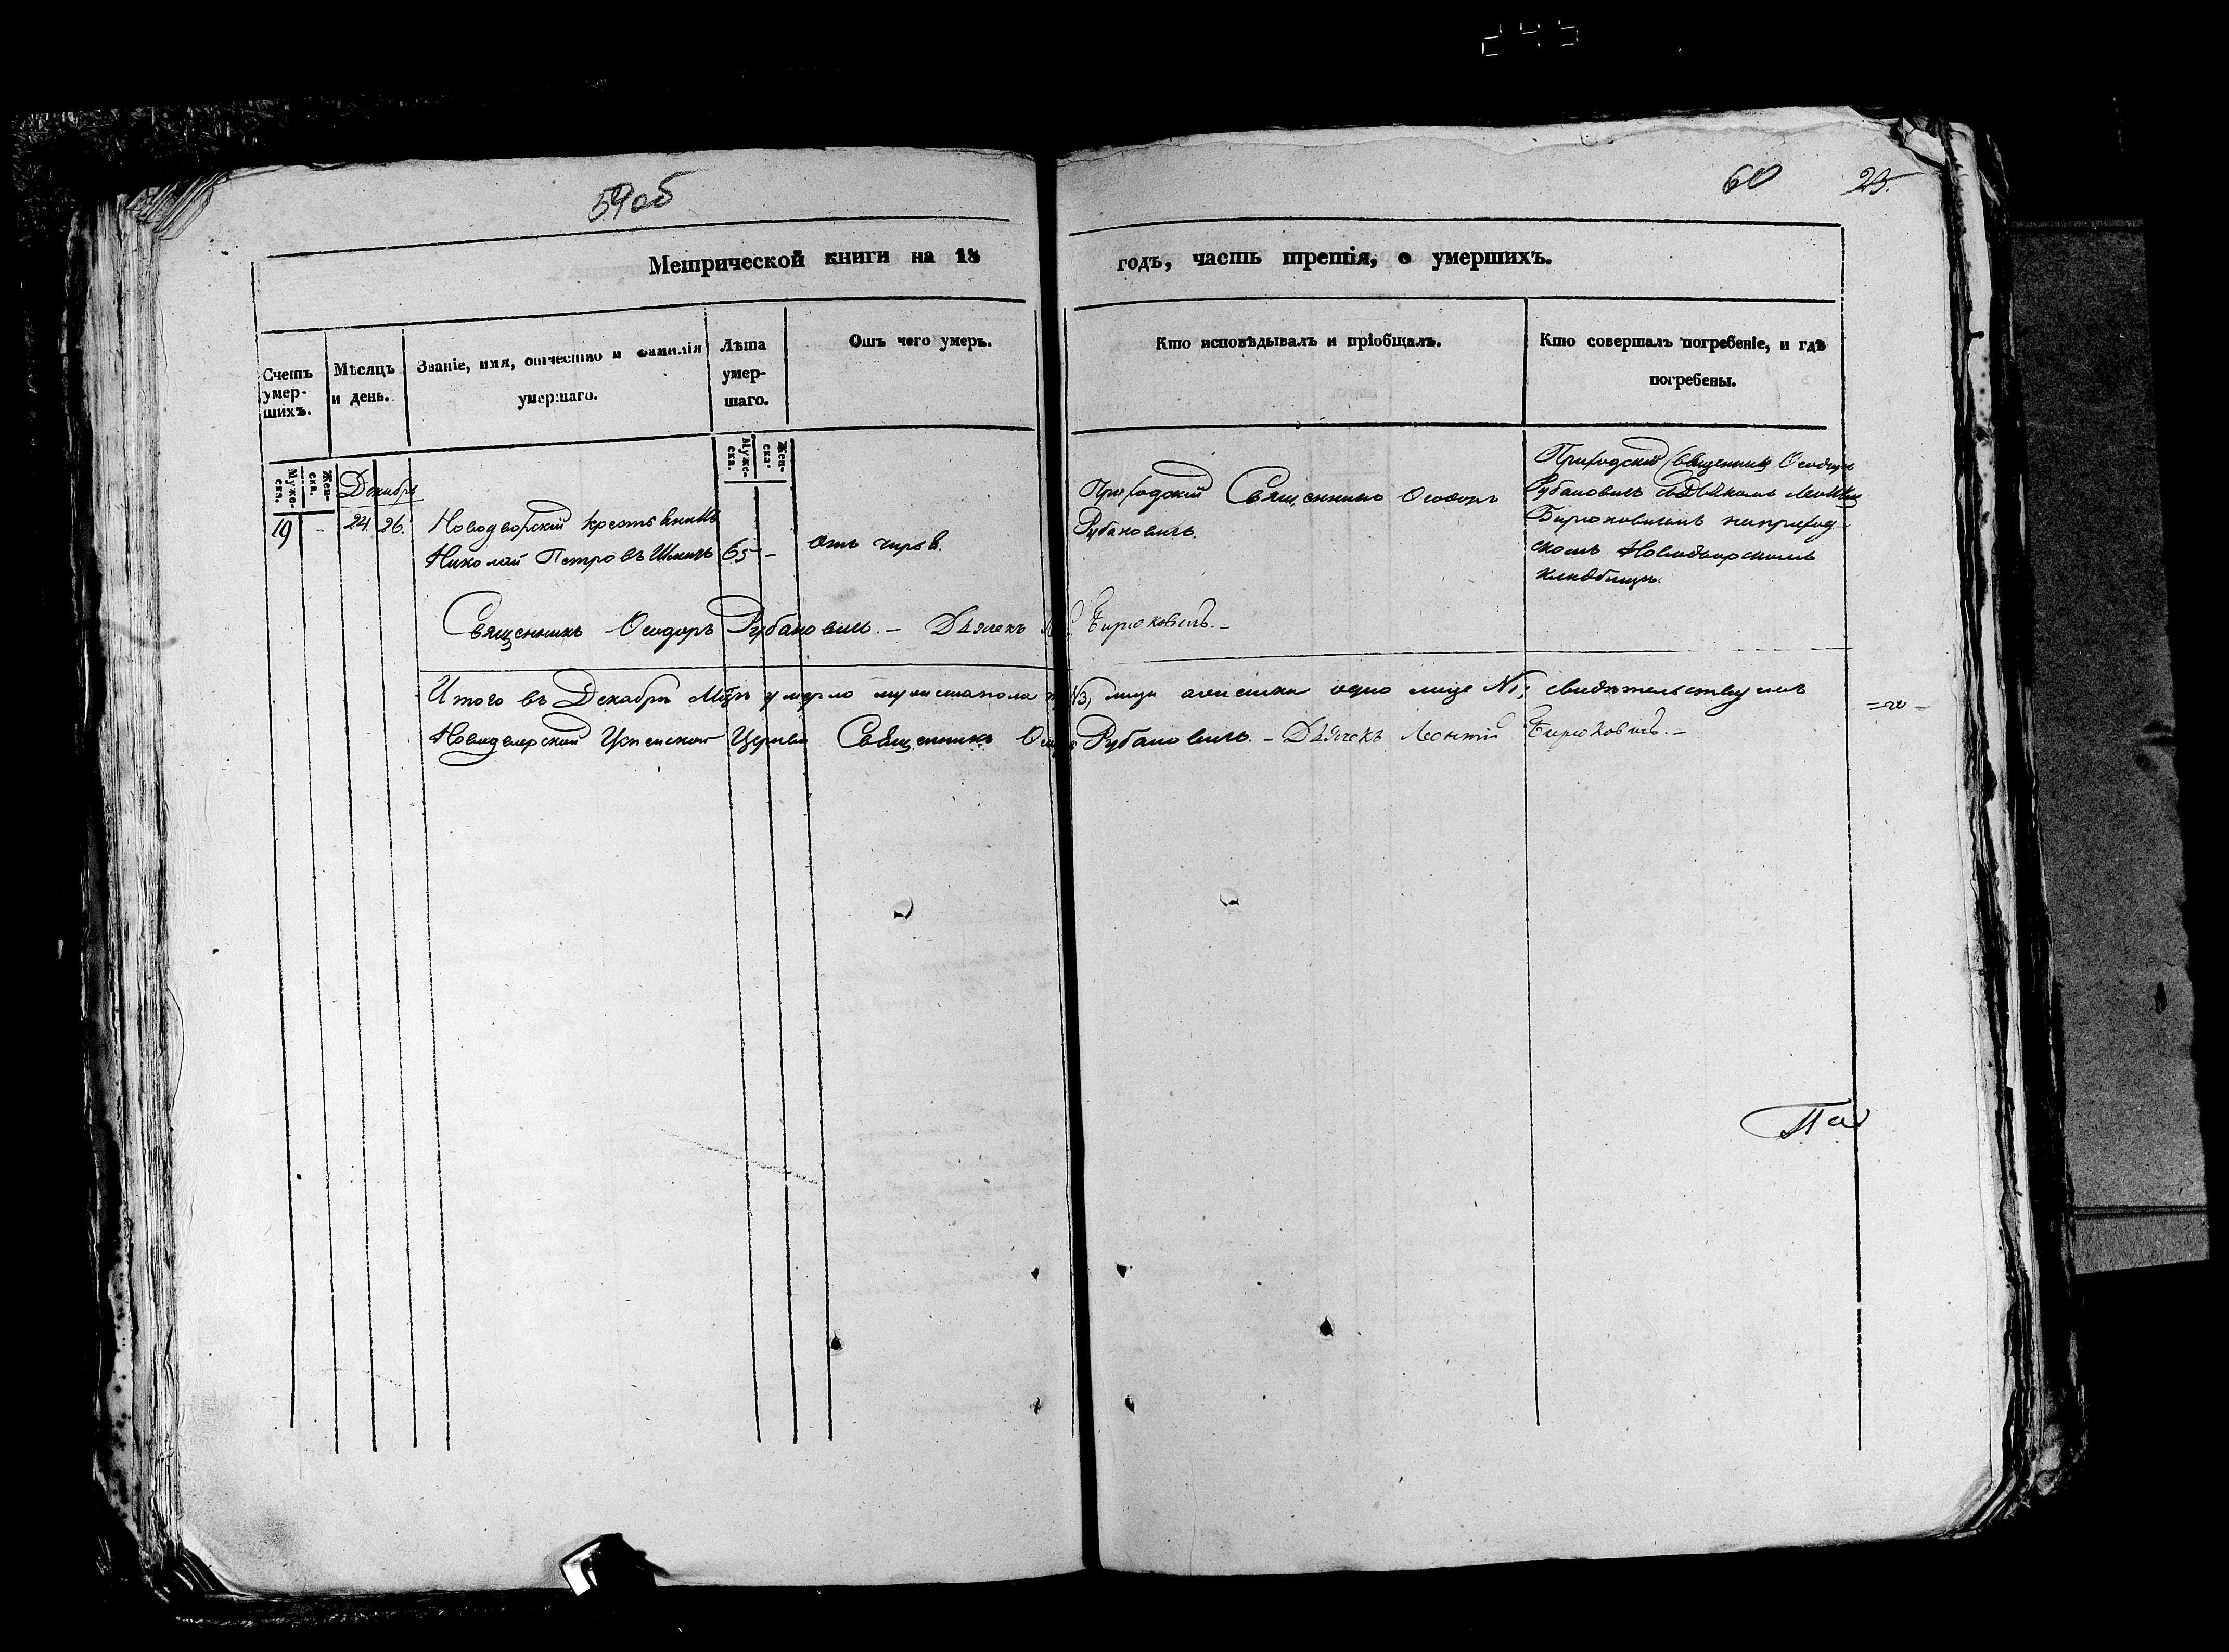 59об
60 23.
Метрической книги на 18 годъ, часть третія, о умершихъ.
Счетъ умер-шихъ.
Мѣсяцъ и день.
Званіе, имя, отчество и фамилія умершаго.
Лѣта умер-шаго.
Отъ чего умеръ.
Кто исповѣдывалъ и пріобщалъ.
Кто совершалъ погребеніе, и гдѣ погребены.
Муже-ска.
Жен-ска.
Муже-ска.
Жен-ска.
Декабрь
19 - 24. 26.
Новодворскій крестьянинъ
Николай Петровъ 65 -
отъ чирья.
Приходскій Священникъ Ѳеодоръ
Рубановичъ.
Приходскій Священникъ Ѳеодоръ
Рубановичъ
Бирюковичемъ наприход-
скомъ Новодворскомъ
кладбищѣ.
Священникъ Ѳеодоръ Рубановичъ. - Дьячекъ Бирюковичъ. -
Итого въ Декабрѣ Мцѣ умерло мужескапола N3, лица аженска одно лице N1, свидѣтельствуемъ
Новодворской Успенской Церкви Священникъ Рубановичъ. - Дьячекъ Леонтій Бирюковичъ. -